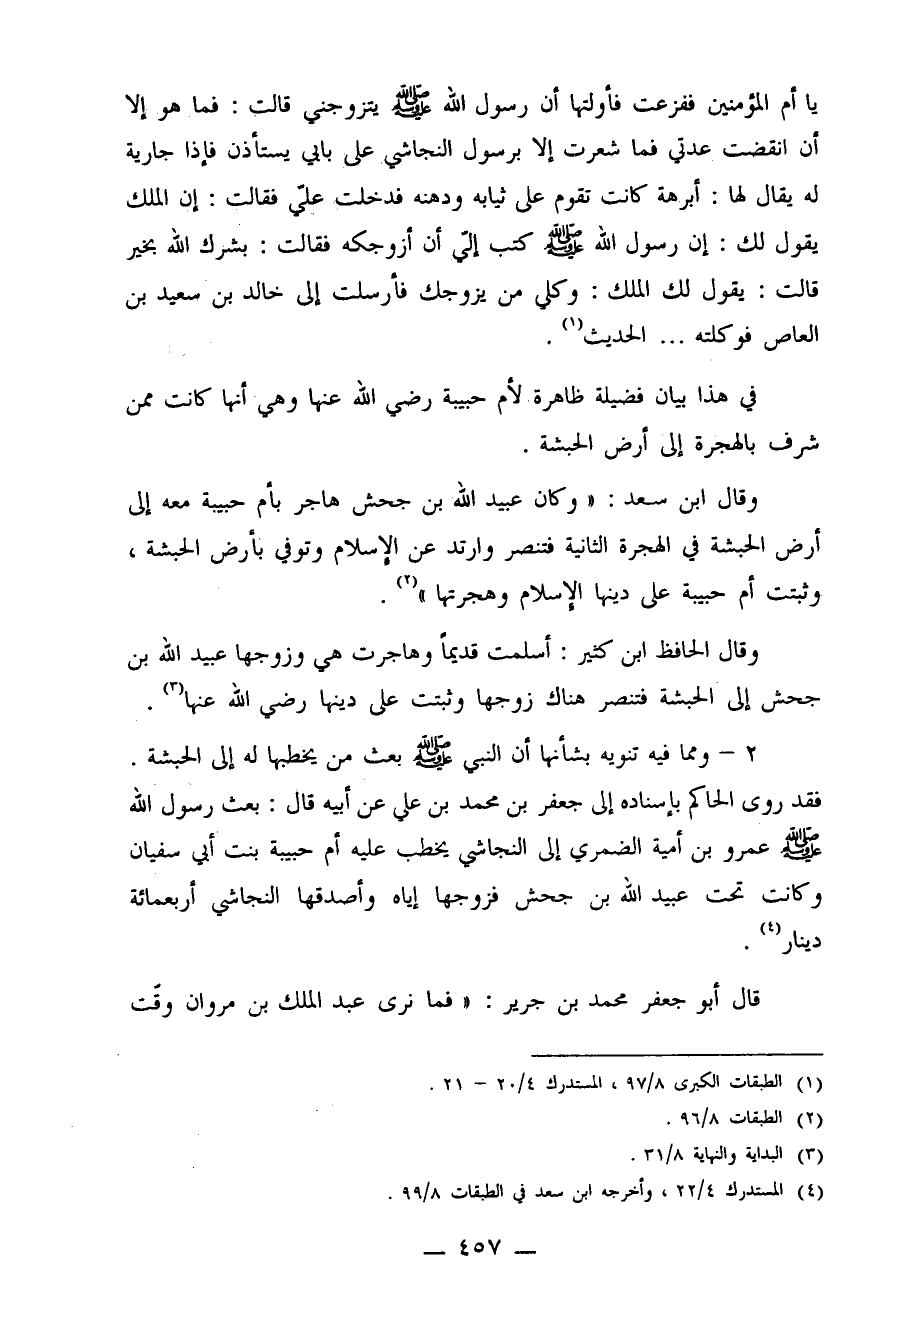 يا أم المؤمنين ففزعت فأولتها أن رسول الله ﷺ يتزوجني قالت : فما هو إلا
أن انقضت عدتي فما شعرت إلا برسول النجاشي على بابي يستأذن فإذا جارية
له يقال لها : أبرهة كانت تقوم على ثيابه ودهنه فدخلت عليّ فقالت : إن الملك
يقول لك : إن رسول الله ﷺ كتب إليّ أن أزوجكه فقالت : بشرك الله بخير
قالت : يقول لك الملك : وكلي من يزوجك فأرسلت إلى خالد بن سعيد بن
العاص فوكلته ... الحديث(١) .
في هذا بيان فضيلة ظاهرة لأم حبيبة رضي الله عنها وهي أنها كانت ممن
شرف بالهجرة إلى أرض الحبشة .
وقال ابن سعد : « وكان عبيد الله بن جحش هاجر بأم حبيبة معه إلى
أرض الحبشة في الهجرة الثانية فتنصر وارتد عن الإسلام وتوفي بأرض الحبشة ،
وثبتت أم حبيبة على دينها الإسلام وهجرتها »(٢) .
وقال الحافظ ابن كثير : أسلمت قديماً وهاجرت هي وزوجها عبيد الله بن
جحش إلى الحبشة فتنصر هناك زوجها وثبتت على دينها رضي الله عنها(٣) .
٢ – ومما فيه تنويه بشأنها أن النبي ﷺ بعث من يخطبها له إلى الحبشة .
فقد روى الحاكم بإسناده إلى جعفر بن محمد بن علي عن أبيه قال : بعث رسول الله
ﷺ عمرو بن أمية الضمري إلى النجاشي يخطب عليه أم حبيبة بنت أبي سفيان
وكانت تحت عبيد الله بن جحش فزوجها إياه وأصدقها النجاشي أربعمائة
دينار(٤) .
قال أبو جعفر محمد بن جرير : « فما نرى عبد الملك بن مروان وقّت
(١) الطبقات الكبرى ٩٧/٨ ، المستدرك ٢٠/٤ – ٢١ .
(٢) الطبقات ٩٦/٨ .
(٣) البداية والنهاية ٣١/٨ .
(٤) المستدرك ٢٢/٤ ، وأخرجه ابن سعد في الطبقات ٩٩/٨ .
— ٤٥٧ —